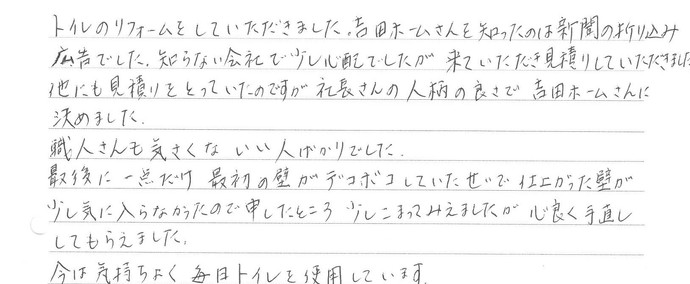 トイレのリフォームをしていただきました。吉田ホームさんを知ったのは新聞の折り込み
広告でした。知らない会社で少し心配でしたが 来ていただき見積りしていただきました
他にも見積りをとっていたのですが 社長さんの人柄の良さで 吉田ホームさんに
決めました。
職人さんも気さくな いい人ばかりでした。
最後に 一点だけ 最初の壁がデコボコしていたせいで仕上がった壁が
少し気に入らなかったので申したところ 少しこまってみえましたが 心良く手直し
してもらえました。
今は気持ちよく 毎日トイレを使用しています。